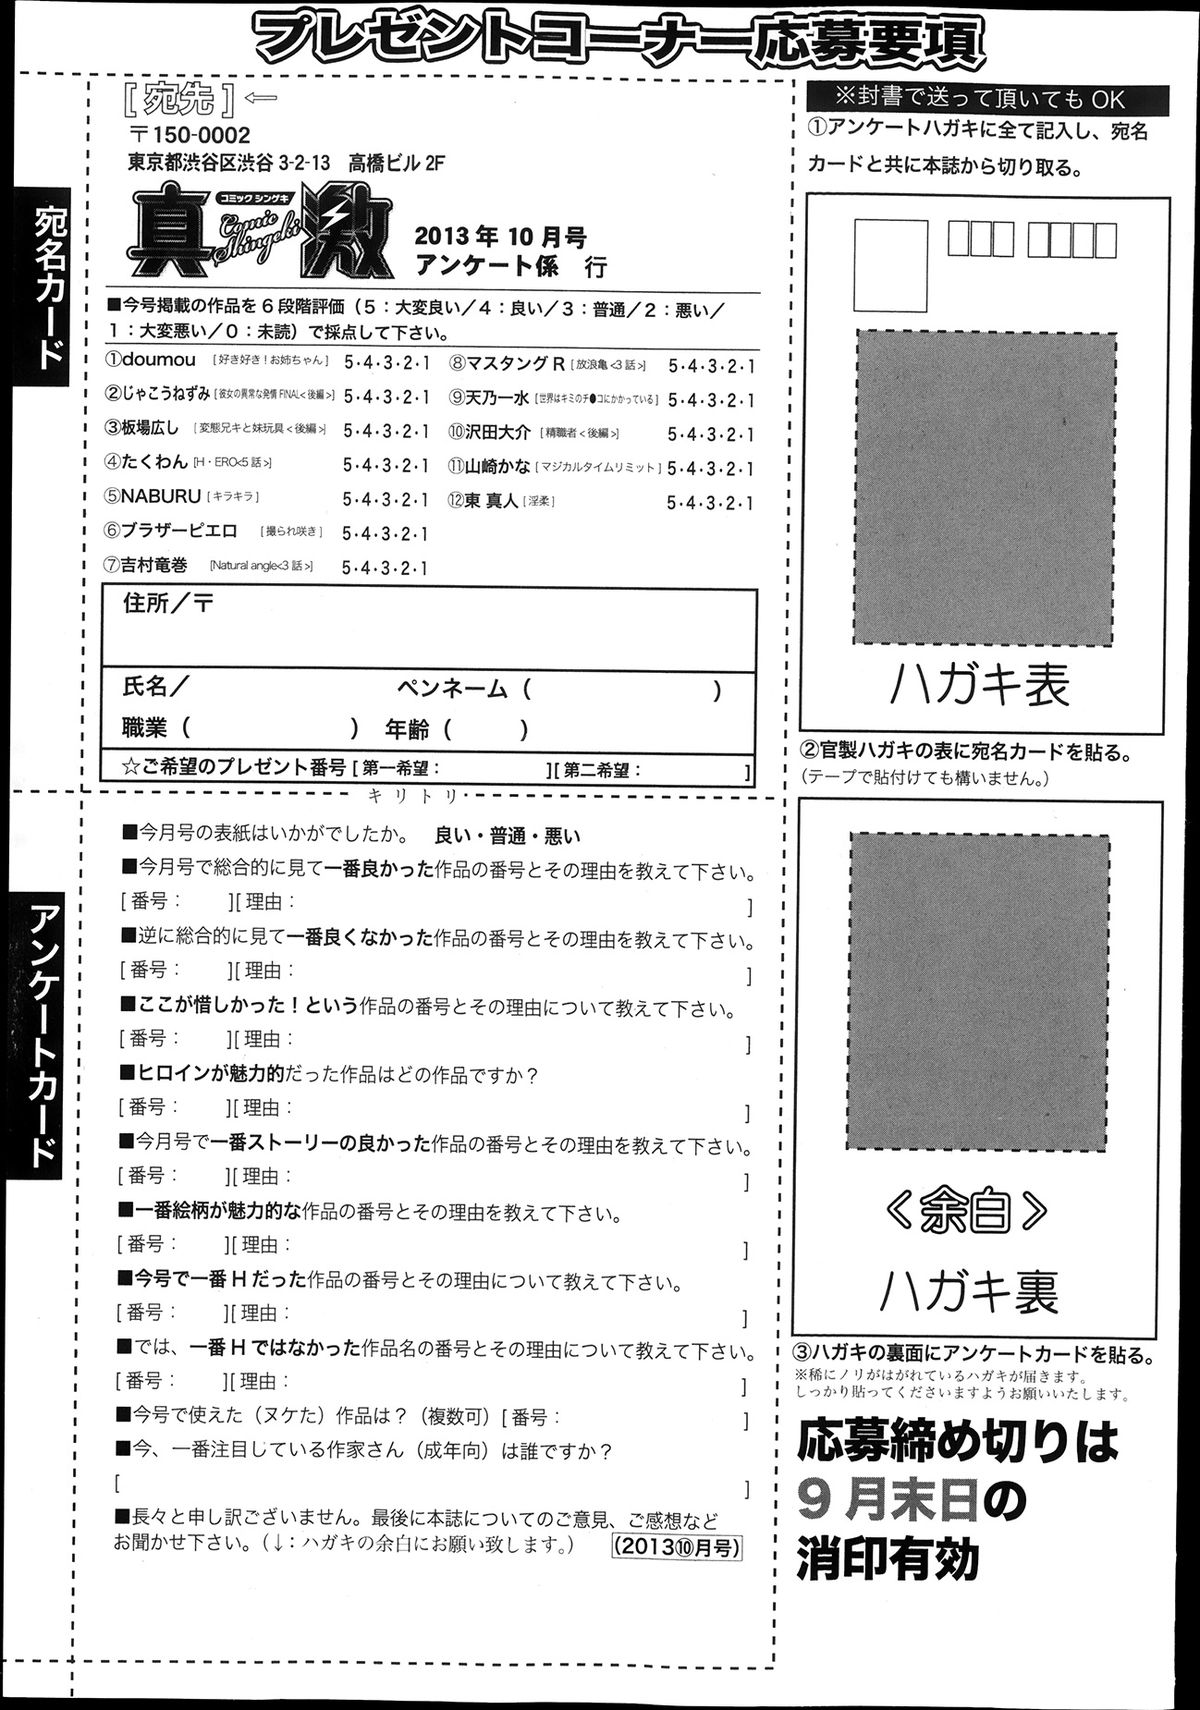 プレゼントコーナー応募要項
[宛先]←
〒150-0002
東京都渋谷区渋谷 3-2-13　高橋ビル 2F
真激
コミック シンゲキ
Comic Shingeki
2013 年 10 月号
アンケート係　行
宛名カード
■今号掲載の作品を 6 段階評価（5：大変良い／4：良い／3：普通／2：悪い／
1：大変悪い／0：未読）で採点して下さい。
①doumou [好き好き！お姉ちゃん] 5・4・3・2・1
②じゃこうねずみ [彼女の異常な発情 FINAL<後編>] 5・4・3・2・1
③板場広し [変態兄キと妹玩具<後編>] 5・4・3・2・1
④たくわん [H・ERO<5話>] 5・4・3・2・1
⑤NABURU [キラキラ] 5・4・3・2・1
⑥ブラザーピエロ [撮られ咲き] 5・4・3・2・1
⑦吉村竜巻 [Natural angle<3話>] 5・4・3・2・1
⑧マスタング R [放浪亀<3話>] 5・4・3・2・1
⑨天乃一水 [世界はキミのチ●コにかかっている] 5・4・3・2・1
⑩沢田大介 [精職者<後編>] 5・4・3・2・1
⑪山崎かな [マジカルタイムリミット] 5・4・3・2・1
⑫東 真人 [淫柔] 5・4・3・2・1
住所／〒
氏名／　ペンネーム（　）
職業（　）　年齢（　）
☆ご希望のプレゼント番号 [ 第一希望：　][ 第二希望：　]
キリトリ
アンケートカード
■今月号の表紙はいかがでしたか。　良い・普通・悪い
■今月号で総合的に見て一番良かった作品の番号とその理由を教えて下さい。
[ 番号：　][ 理由：　]
■逆に総合的に見て一番良くなかった作品の番号とその理由を教えて下さい。
[ 番号：　][ 理由：　]
■ここが惜しかった！という作品の番号とその理由について教えて下さい。
[ 番号：　][ 理由：　]
■ヒロインが魅力的だった作品はどの作品ですか？
[ 番号：　][ 理由：　]
■今月号で一番ストーリーの良かった作品の番号とその理由を教えて下さい。
[ 番号：　][ 理由：　]
■一番絵柄が魅力的な作品の番号とその理由を教えて下さい。
[ 番号：　][ 理由：　]
■今号で一番 H だった作品の番号とその理由について教えて下さい。
[ 番号：　][ 理由：　]
■では、一番 H ではなかった作品名の番号とその理由について教えて下さい。
[ 番号：　][ 理由：　]
■今号で使えた（ヌケた）作品は？（複数可）[ 番号：　]
■今、一番注目している作家さん（成年向）は誰ですか？
[　]
■長々と申し訳ございません。最後に本誌についてのご意見、ご感想など
お聞かせ下さい。（↓：ハガキの余白にお願い致します。）　(2013⑩月号)
※封書で送って頂いても OK
①アンケートハガキに全て記入し、宛名
カードと共に本誌から切り取る。
ハガキ表
②官製ハガキの表に宛名カードを貼る。
（テープで貼付けても構いません。）
＜余白＞
ハガキ裏
③ハガキの裏面にアンケートカードを貼る。
※稀にノリがはがれているハガキが届きます。
しっかり貼ってくださいますようお願いいたします。
応募締め切りは
9 月末日の
消印有効